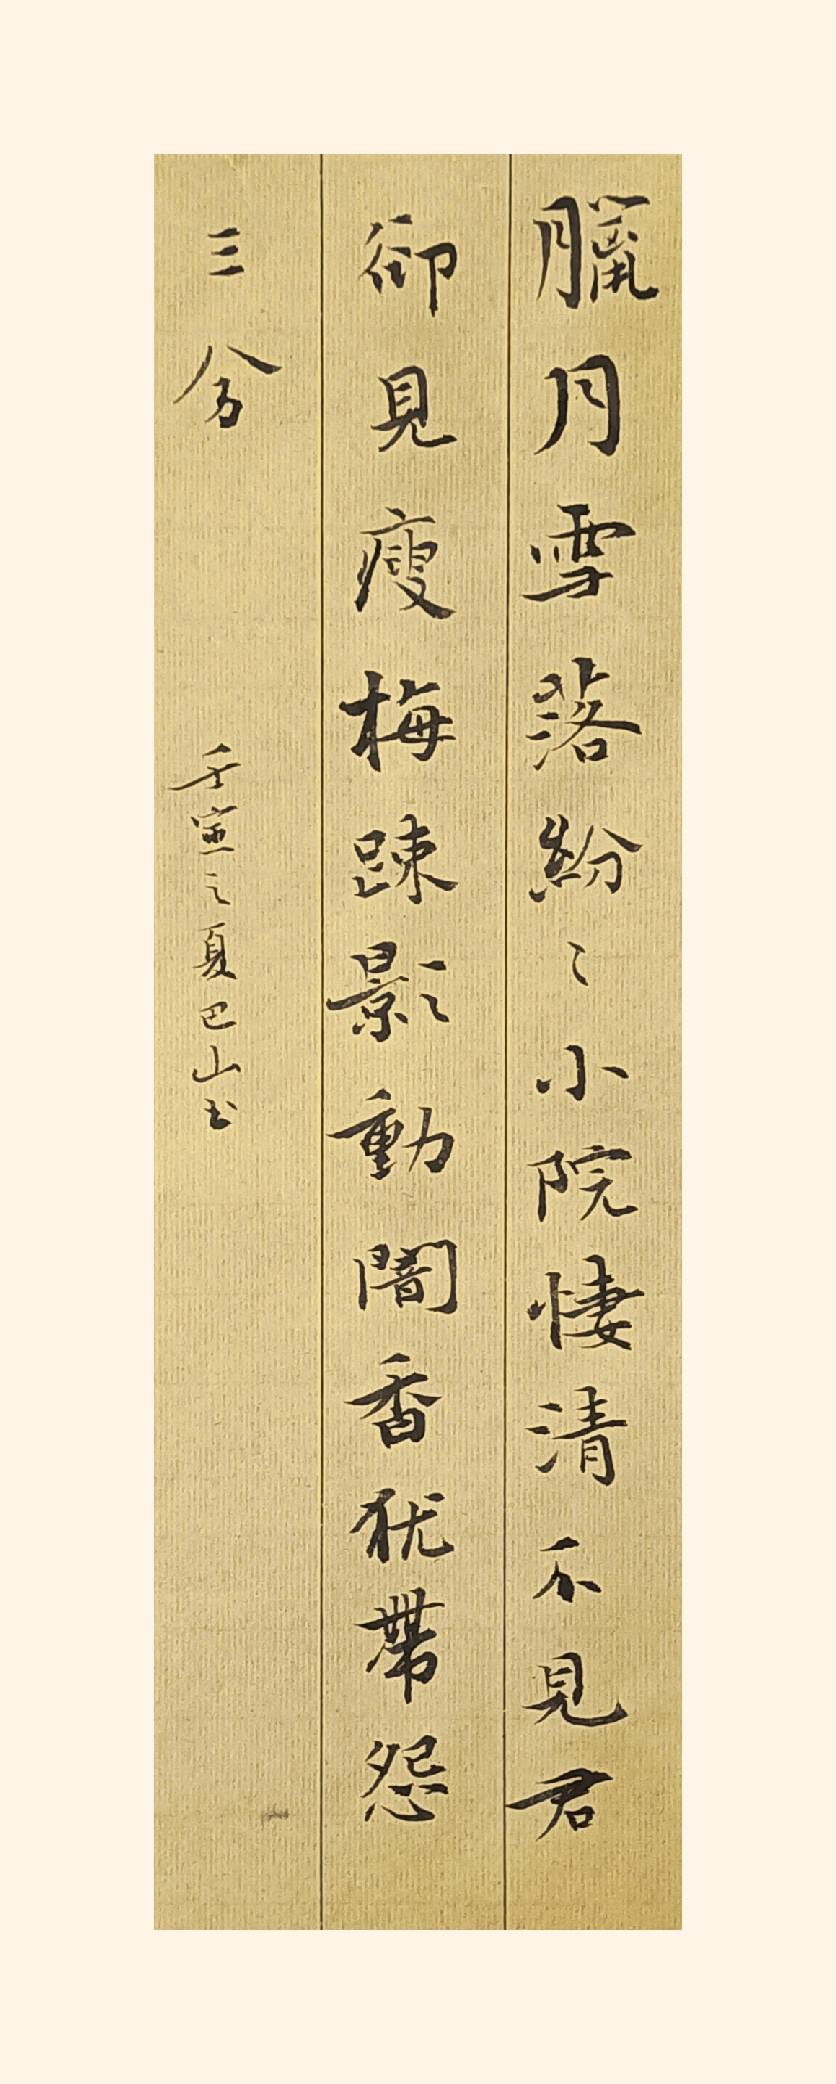 臘月雪落紛〻小院悽清不見君
卻見瘦梅踈影動闇香猶帶怨
三分
壬寅之夏巴山书